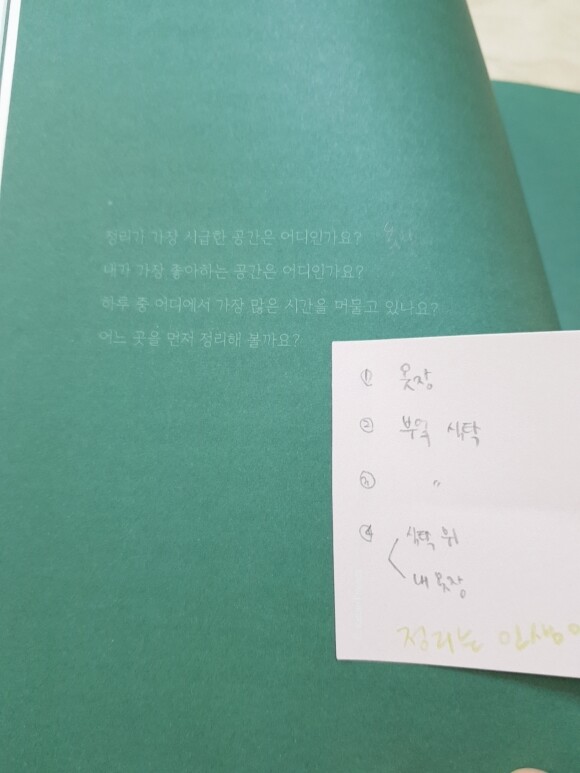 정리가 가장 시급한 공간은 어디인가요?
내가 가장 좋아하는 공간은 어디인가요?
하루 중 어디에서 가장 많은 시간을 머물고 있나요?
어느 곳을 먼저 정리해 볼까요?
① 옷장
② 부엌 식탁
③ 〃
④ 식탁 위
내 옷장
정리는 인생